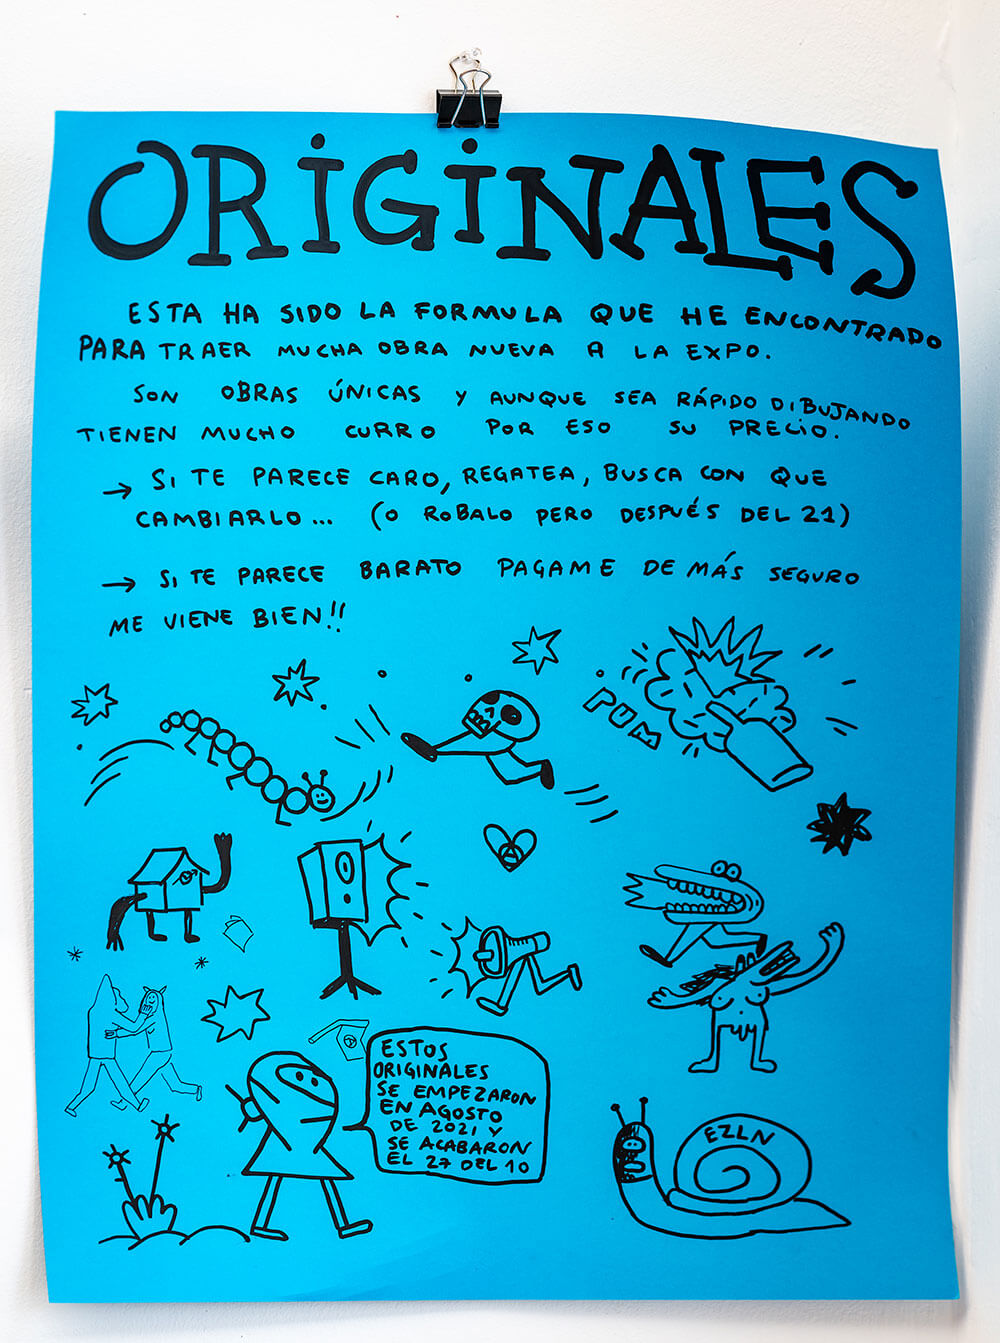 ORIGINALES
ESTA HA SIDO LA FORMULA QUE HE ENCONTRADO
PARA TRAER MUCHA OBRA NUEVA A LA EXPO.
SON OBRAS ÚNICAS Y AUNQUE SEA RÁPIDO DIBUJANDO
TIENEN MUCHO CURRO POR ESO SU PRECIO.
→ SI TE PARECE CARO, REGATEA, BUSCA CON QUE
CAMBIARLO... (O ROBALO PERO DESPUÉS DEL 21)
→ SI TE PARECE BARATO PAGAME DE MÁS SEGURO
ME VIENE BIEN!!
PUM
ESTOS
ORIGINALES
SE EMPEZARON
EN AGOSTO
DE 2021 Y
SE ACABARON
EL 27 DEL 10
EZLN